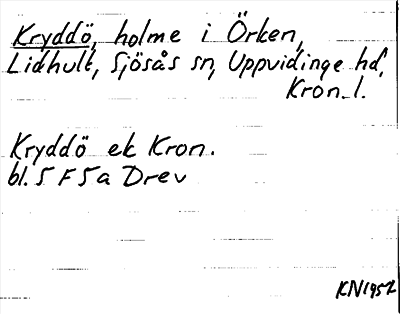 Kryddö, holme i Örken,
Lidhult, Sjösås sn, Uppvidinge hd,
Kron. l.
Kryddö ek Kron.
bl. 5 F 5a Drev
KN1957